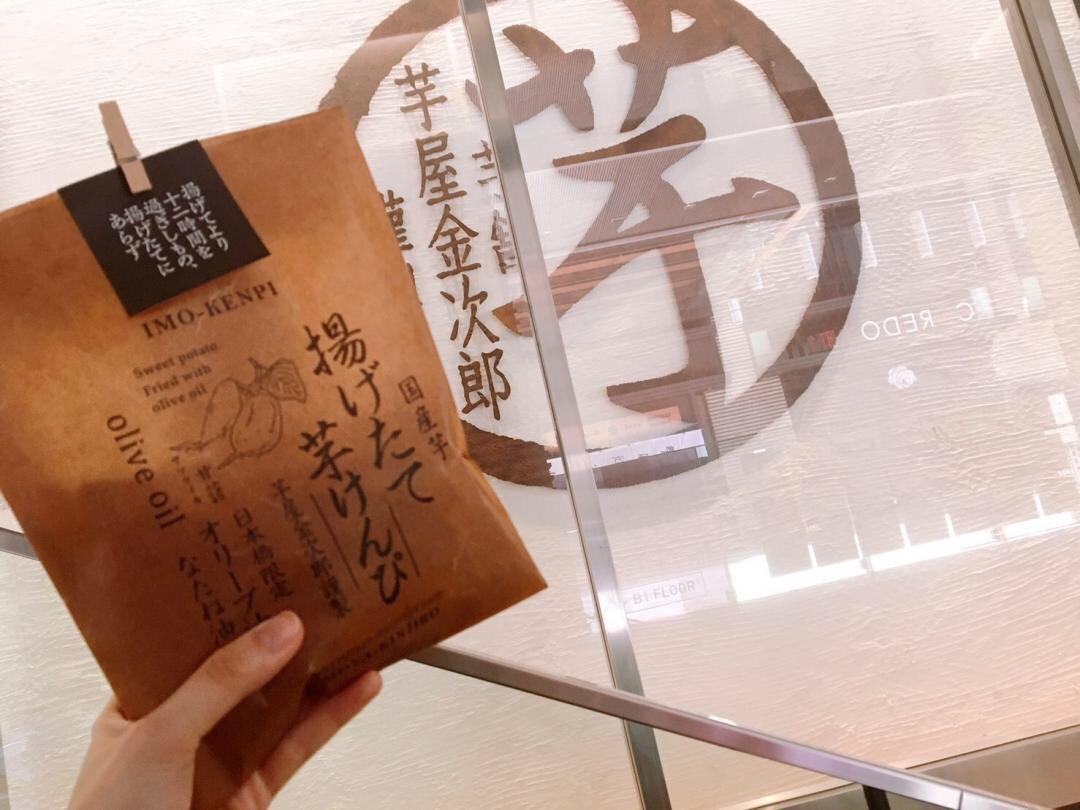 揚げてより
十二時間を
過ぎしもの、
揚げたてに
あらず
IMO-KENPI
Sweet potato
Fried with
olive oil
olive oil
国産芋
揚げたて
芋けんぴ
芋屋金次郎謹製
日本橋限定
オリーブ油
なたね油
芋
芋屋金次郎
COREDO
B1 FLOOR